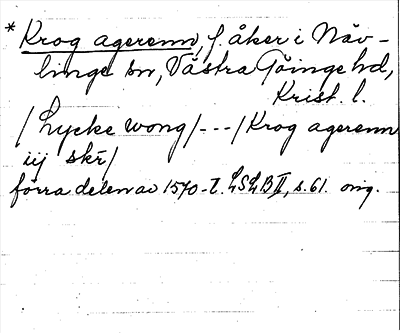 * Krog agerenn, f. åker i Näv-
linge sn, Västra Göinge hd,
Krist. l.
/ Lycke wong / --- / Krog agerenn
iij skr̄ /
förra delen av 1570-t. LSLB II, s. 61. orig.